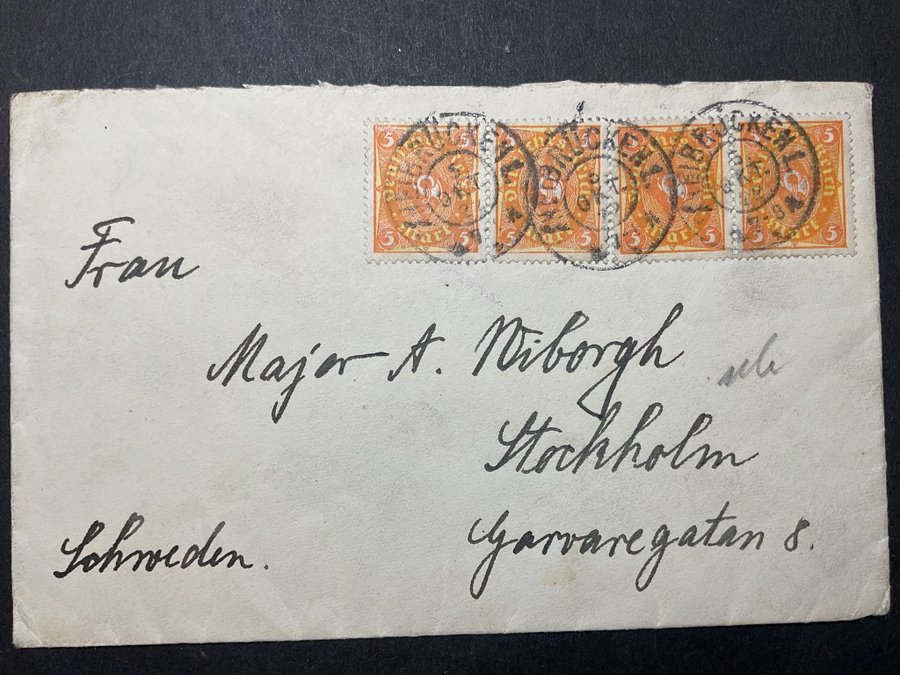 5 5 5 5 5 5 5 5
5 5 5 5 5 5 5 5
Frau
Major A. Wiborgh
Stockholm
Garvaregatan 8.
Schweden.